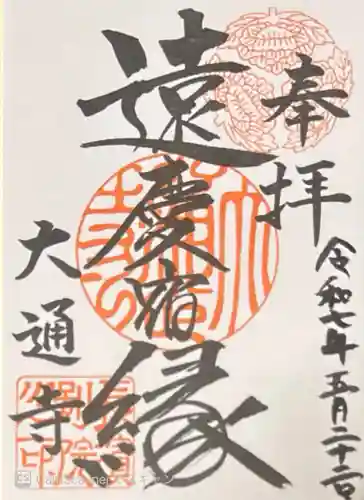 奉拝
令和七年五月二十二日
遠慶宿縁
大通寺